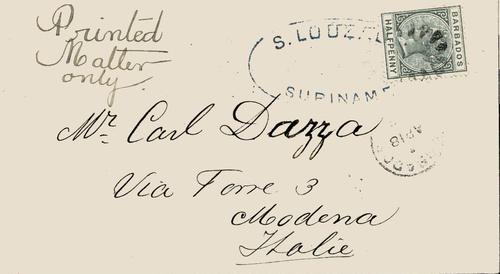 Printed
Matter
only.
S. LOUZ
SURINAME
HALFPENNY
BARBADOS
AP 18
Mr. Carl Dazza
Via Torre 3
Modena
Italie